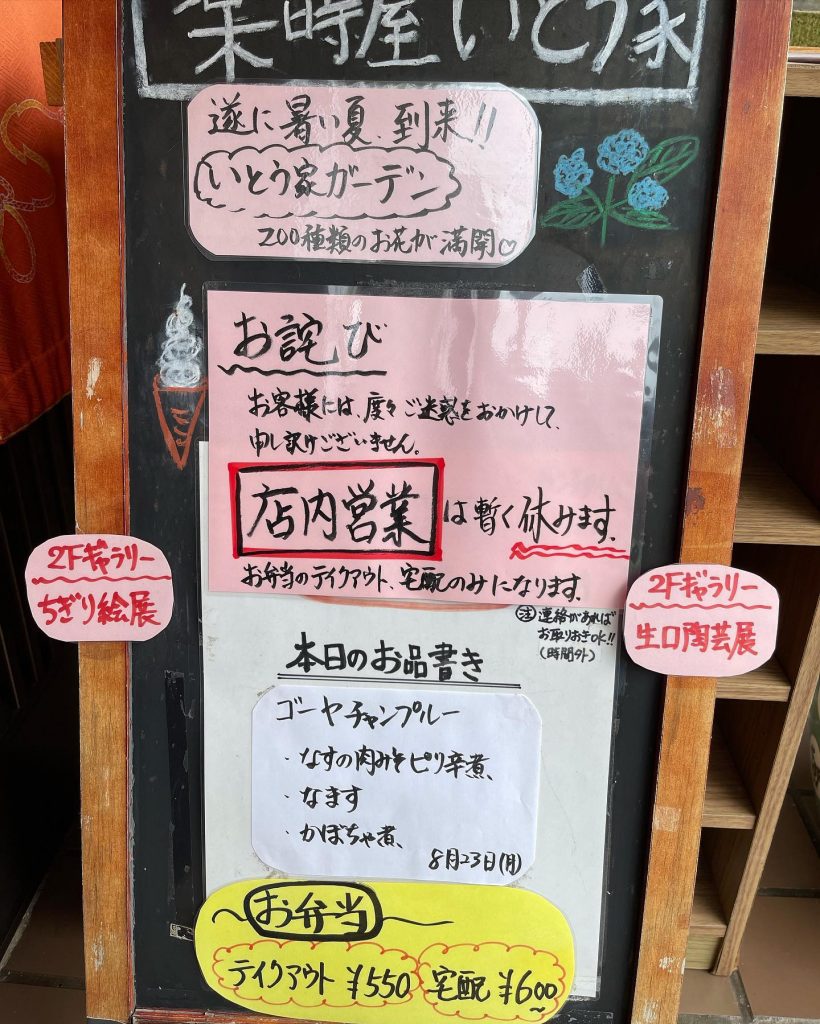 時屋いとう家
遂に暑い夏、到来!!
いとう家ガーデン
200種類のお花が満開♡
お詫び
お客様には、度々ご迷惑をおかけして、
申し訳けございません。
店内営業は暫く休みます。
お弁当のテイクアウト、宅配のみになります。
注 連絡があれば
お取りおきOK!!
(時間外)
2Fギャラリー
ちぎり絵展
2Fギャラリー
生口陶芸展
本日のお品書き
ゴーヤチャンプルー
・なすの肉みそピリ辛煮、
・なます
・かぼちゃ煮、
8月23日(月)
お弁当
テイクアウト ¥550 宅配 ¥600~